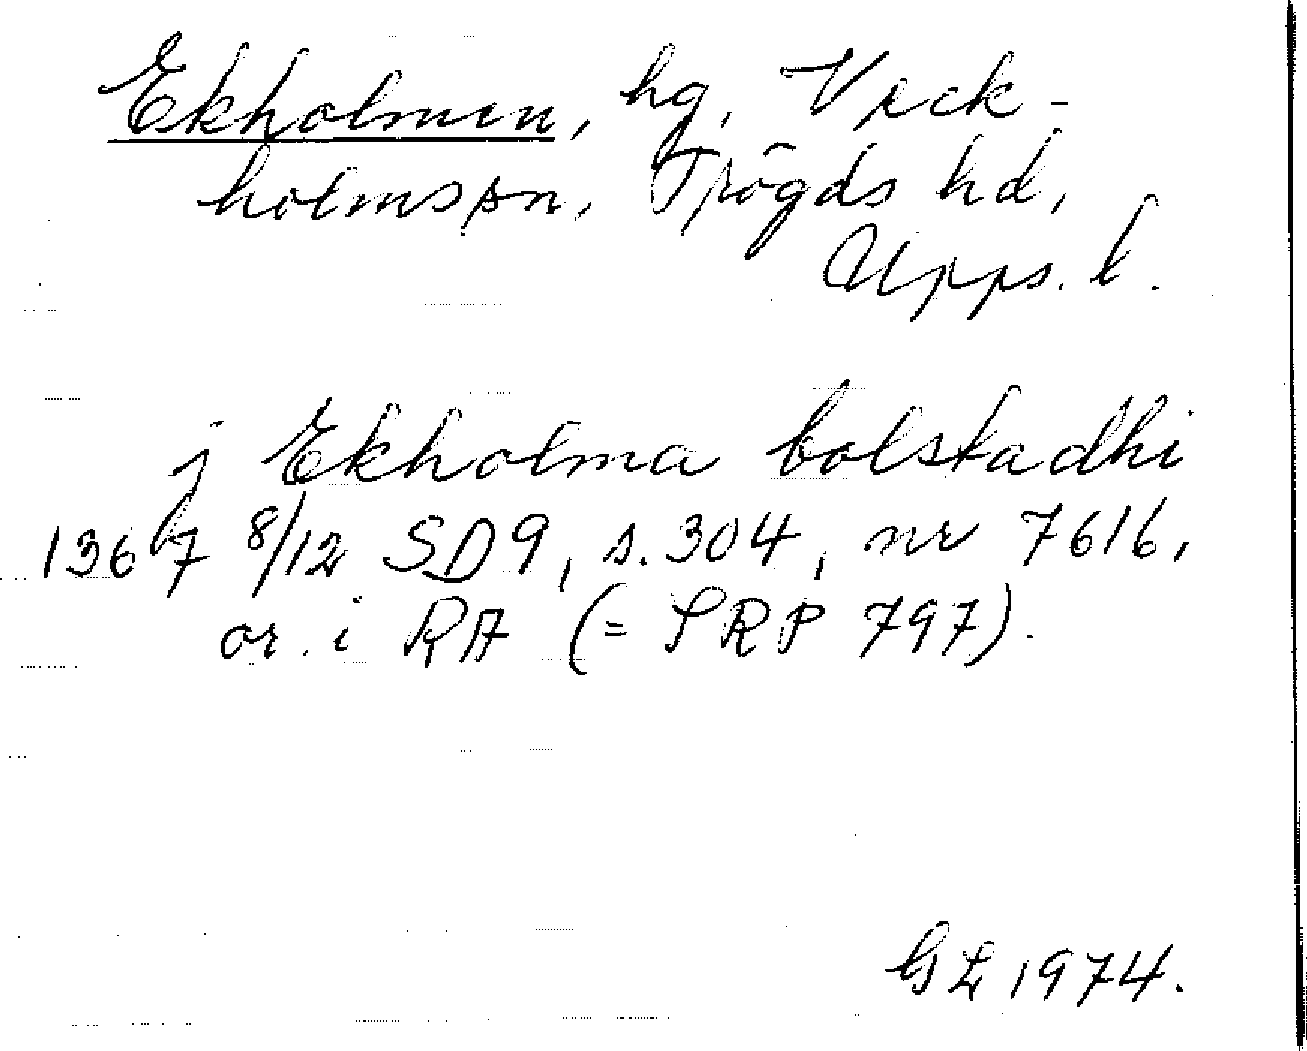 Ekholmen, hg, Veck-
holms sn, Trögds hd,
Upps. l.
j Ekholma bolstadhi
1367 8/12 SD 9, s. 304, nr 7616,
or. i RA (= SRP 797).
GL 1974.